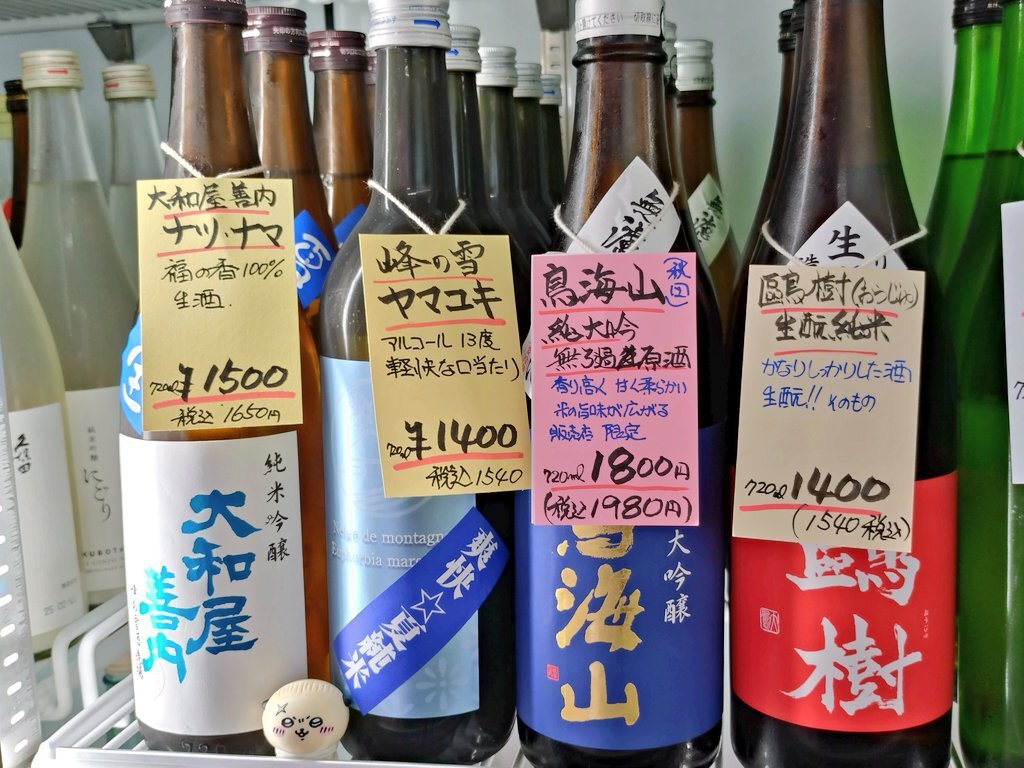 大和屋善内
ナツ・ナマ
福の香100%
生酒.
720ml ¥1500
税込1650円
峰の雪
ヤマユキ
アルコール13度
軽快な口当たり
720ml ¥1400
税込1540
秋田
鳥海山
純大吟
無ろ過生原酒
香り高く甘く柔らかい
米の旨味が広がる
販売店限定
720ml 1800円
(税込1980円)
生酛純米
かなりしっかりした酒
生酛!!そのもの
720ml 1400
(1540税込)
純米吟醸
大和屋
善内
Neige de montagn
爽快☆夏純米
大吟醸
鳥海山
樹
生
久保田
純米吟醸
にごり
KUBOTA